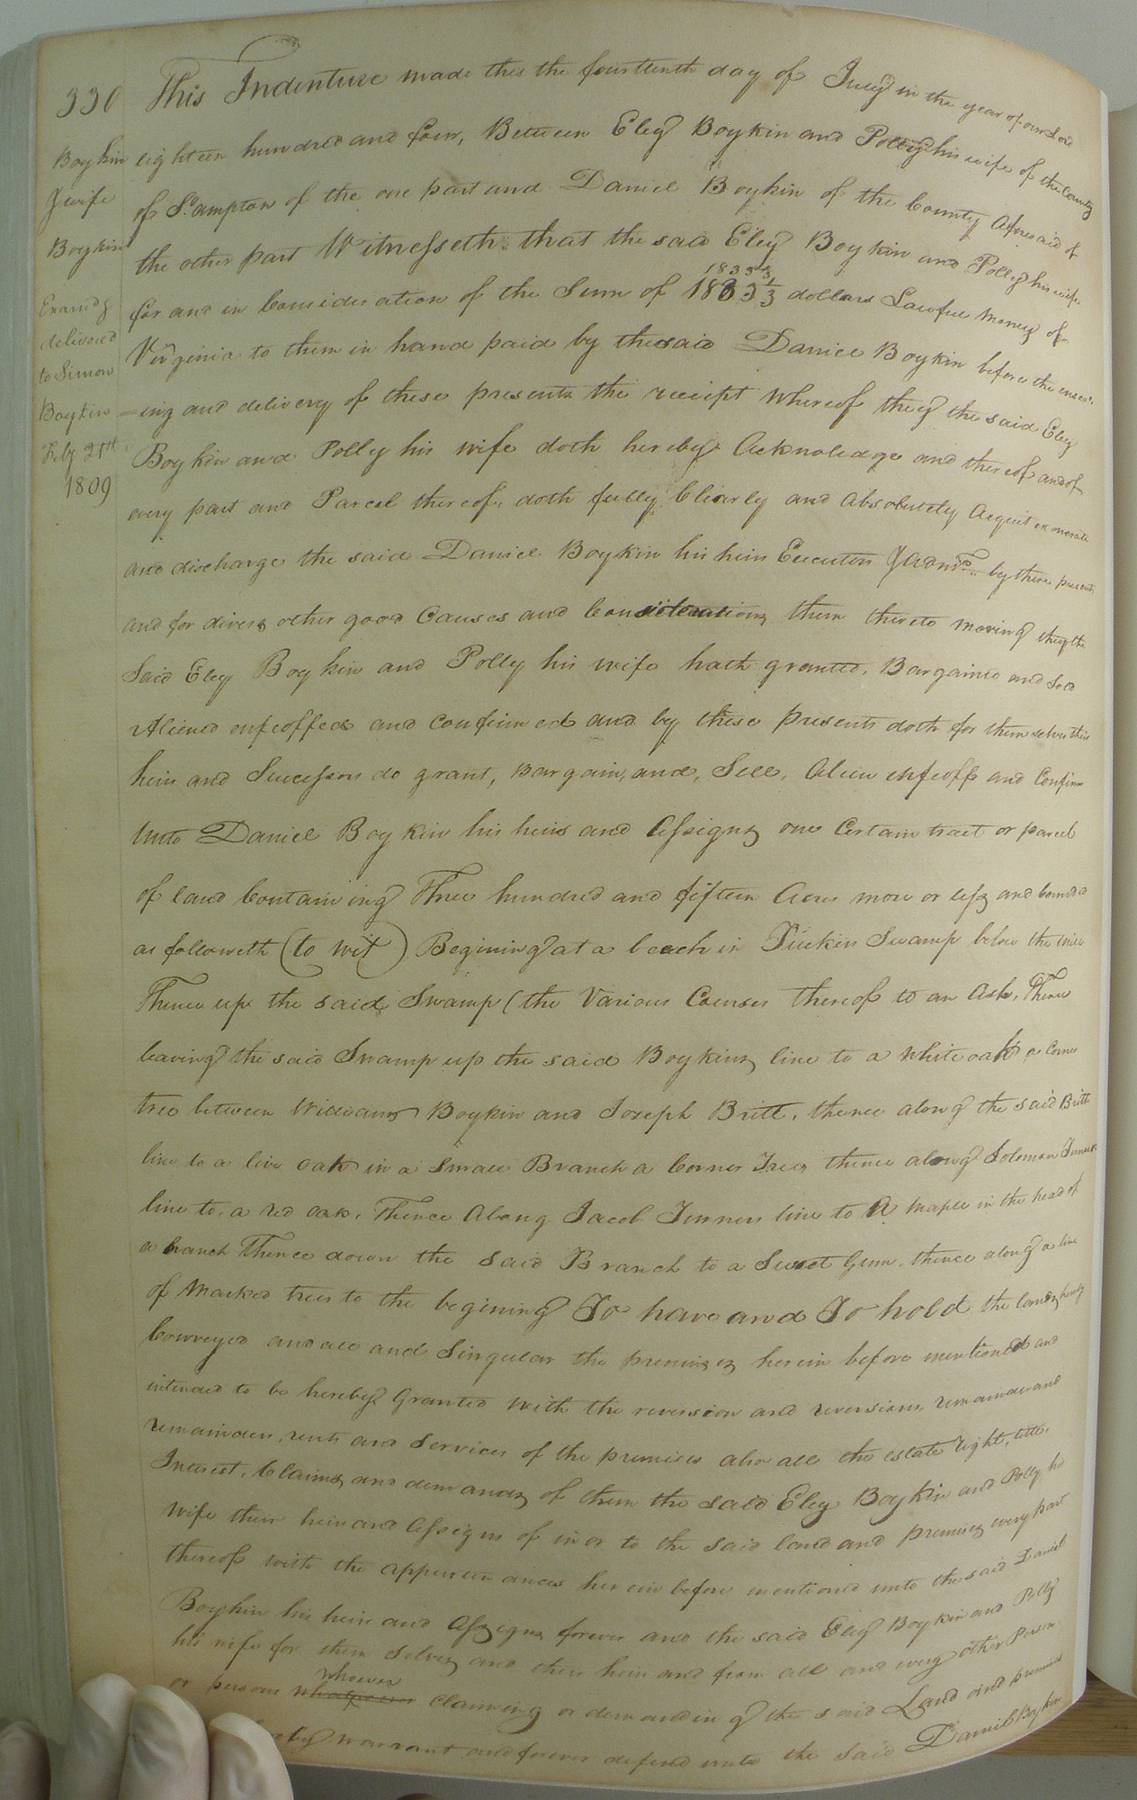 330
Boykin
& wife
Boykin
Exam'd &
delivered
to Simon
Boykin
Feby 21st
1809
This Indenture made this the fourteenth day of July in the year of our Lord
eighteen hundred and four, Between Eley Boykin and Polley his wife of the County
of S.ampton of the one part and Daniel Boykin of the County aforesaid of
the other part Witnesseth that the said Eley Boykin and Polley his wife
for and in Consideration of the Sum of 1833 1/3 dollars Lawful Money of
1833 1/3
Virginia to them in hand paid by the said Daniel Boykin before the enseal
=ing and delivery of these presents the receipt Whereof they the said Eley
Boykin and Polley his wife doth hereby Acknoledge and thereof and of
every part and Parcel thereof, doth fully Clearly and Absolutely Acquit exonerate
and discharge the said Daniel Boykin his heirs Executors & Admrs. by these presents
and for divers other good Causes and Considerations them thereto moving they the
Said Eley Boykin and Polly his wife hath granted, Bargained and Sold
Aliened enfeoffed and confirmed and by these presents doth for themselves their
heirs and Successors do grant, Bargain, and, Sell, Alien enfeoff and Confirm
Unto Daniel Boykin his heirs and Assigns one Certain tract or parcel
of land Containing Three hundred and fifteen Acres more or less and bounded
as followeth (to wit) Begining at a beach in Swamp below the
Thence up the said Swamp (the Various Courses thereof to an Ash, Thence
leaving the said Swamp up the said Boykins line to a White oak a Corner
tree between William Boykin and Joseph Britt, thence along the said Britts
line to a live oak in a Small Branch a Corner Tree thence along Solomon
line to, a red oak, Thence Along Jacob line to A maple in the head of
a branch Thence down the said Branch to a Sweet Gum, thence along a line
of Marked trees to the begining To have and To hold the lands hereby
Conveyed and all and Singular the premises herein before mentioned and
intended to be hereby Granted with the reversion and reversions, remainder and
remainders, rents and Services of the premises also all the estate right, title,
Interest, Claims, and demands of them the said Eley Boykin and Polly his
Wife their heirs and Assigns of in or to the said land and premises every part
thereof with the appurtenances herein before mentioned unto the said Daniel
Boykin his heirs and Assigns forever and the said Eley Boykin and Polly
his wife for them Selves and their heirs and from all and every other Person
whoever
or persons whatsoever Claiming or demanding of the said Land and premises
warrant and forever defend unto the Said Daniel Boykin